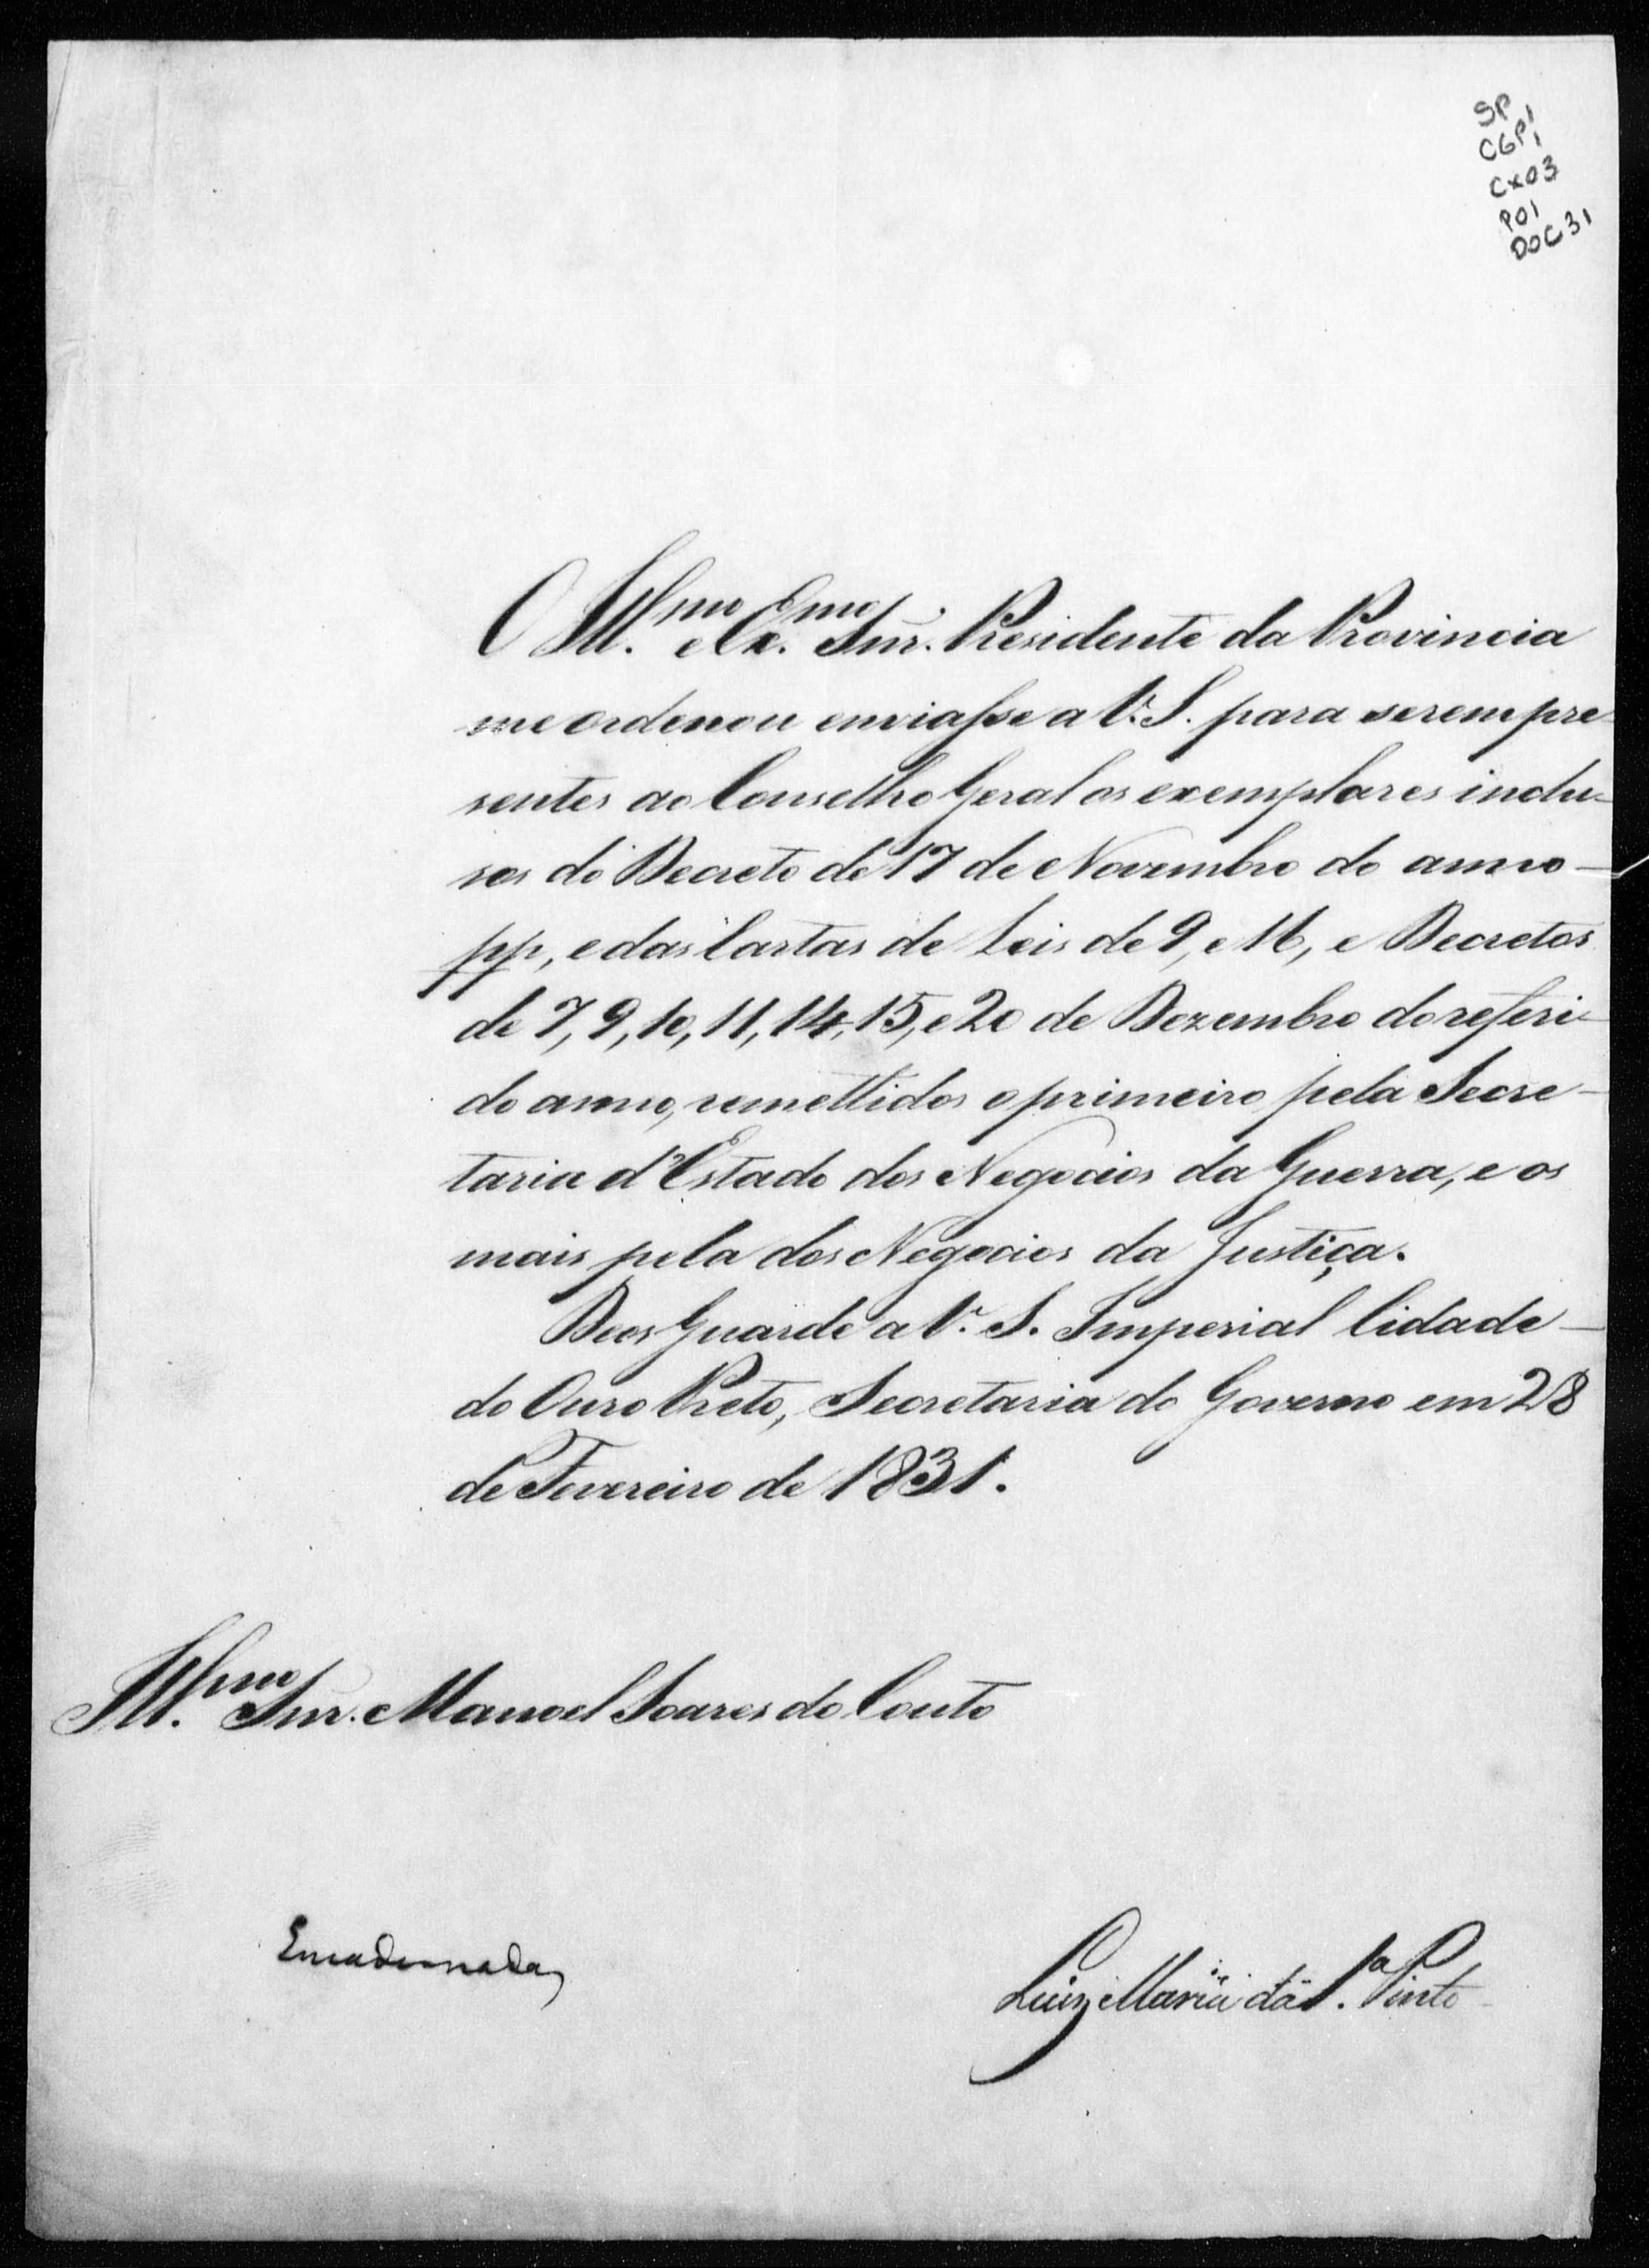 SP
CGP1
CX03
P01
DOC31
O Ill.mo e Ex.mo Snr. Presidente da Provincia
me ordenou enviasse a V. S. para serem pre-
sentes ao Conselho Geral os exemplares inclu-
sos do Decreto de 17 de Novembro do anno
pp, e das Cartas de Leis de 9, e 11, e Decretos
de 7, 9, 10, 11, 14, 15, e 20 de Dezembro do referi-
do anno, remettidos o primeiro pela Secre-
taria d'Estado dos Negocios da Guerra, e os
mais pela dos Negocios da Justiça.
Deos Guarde a V. S. Imperial Cidade
do Ouro Preto, Secretaria do Governo em 28
de Fevereiro de 1831.
Ill.mo Snr. Manoel Soares do Couto
Luiz Maria da S.a Pinto